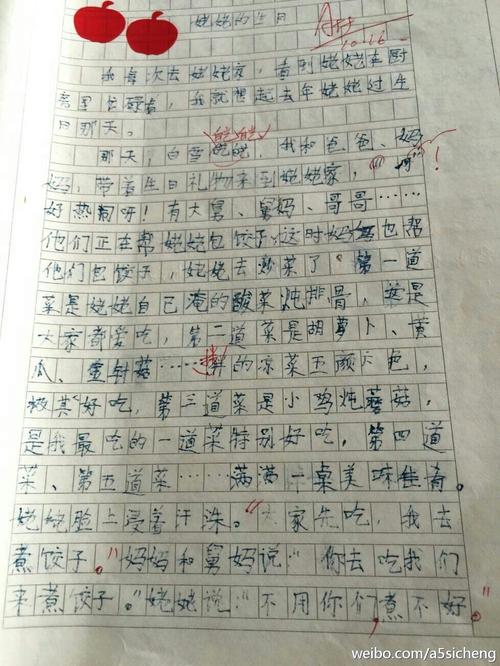 姥姥的生日
A++
10.16
我每次去姥姥家，看到姥姥在厨
房里忙碌着，我就想起去年姥姥过生
日那天。
皑皑
那天，白雪姥姥，我和爸爸、妈
妈，带着生日礼物来到姥姥家，“呵”！
好热闹呀！有大舅、舅妈、哥哥……
他们正在帮姥姥包饺子，这时妈妈也帮
他们包饺子，姥姥去炒菜了。第一道
菜是姥姥自己淹的酸菜炖排骨，这是
大家都爱吃，第二道菜是胡萝卜、黄
瓜、金针菇……拌的凉菜五颜六色，
极其好吃，第三道菜是小鸡炖蘑菇，
是我最吃的一道菜特别好吃，第四道
菜、第五道菜……满满一桌美味佳肴。
姥姥脸上浸着汗洙。“大家先吃，我去
煮饺子。”妈妈和舅妈说“你去吃我们
来煮饺子。”姥姥说“不用你们，煮不好。”
weibo.com/a5sicheng